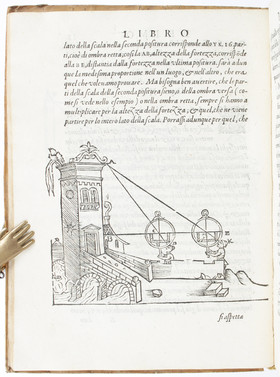 LIBRO
lato della scala nella seconda positura corrisponde allo YK. 16. par-
ti, cioè di ombra retta, così la AB, altezza della fortezza, corrispõde
alla BE, distantia dalla fortezza nella vltima positura. sarà adun
que la medesima proportione nell'un luogo, & nell'altro, che era
quel che volevamo provare. Ma bisogna ben avvertire, che le par-
ti della scala della seconda positura sieno, o della ombra versa (co-
me si vede nello esempio) o nella ombra retta, sempre si hanno a
multiplicare per la altezza della fortezza; & quel, che ne viene
partire per lo intero lato della scala. Potrassi adunque per quel, che
si aspetta